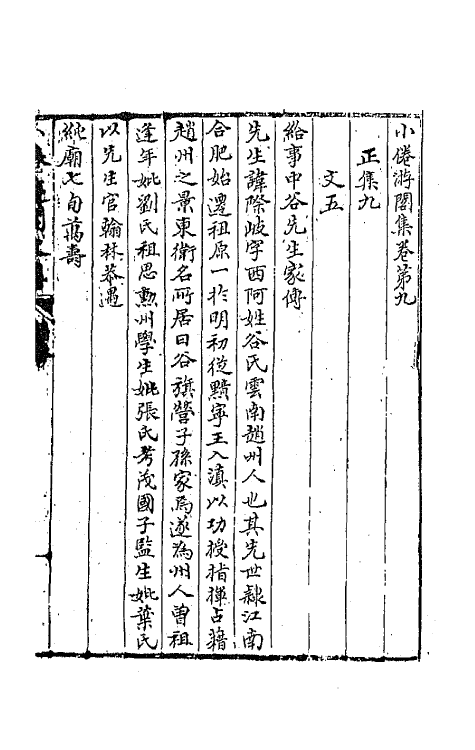 小倦游閣集卷第九
正集九
文五
給事中谷先生家傳
先生諱際岐字西阿姓谷氏雲南趙州人也其先世隸江南
合肥始遷祖原一於明初從黔寧王入滇以功授指揮占籍
趙州之景東衛名所居曰谷旗營子孫家焉遂為州人曾祖
逢年妣劉氏祖思勲州學生妣張氏考茂國子監生妣葉氏
以先生官翰林恭遇
純廟七旬萬壽